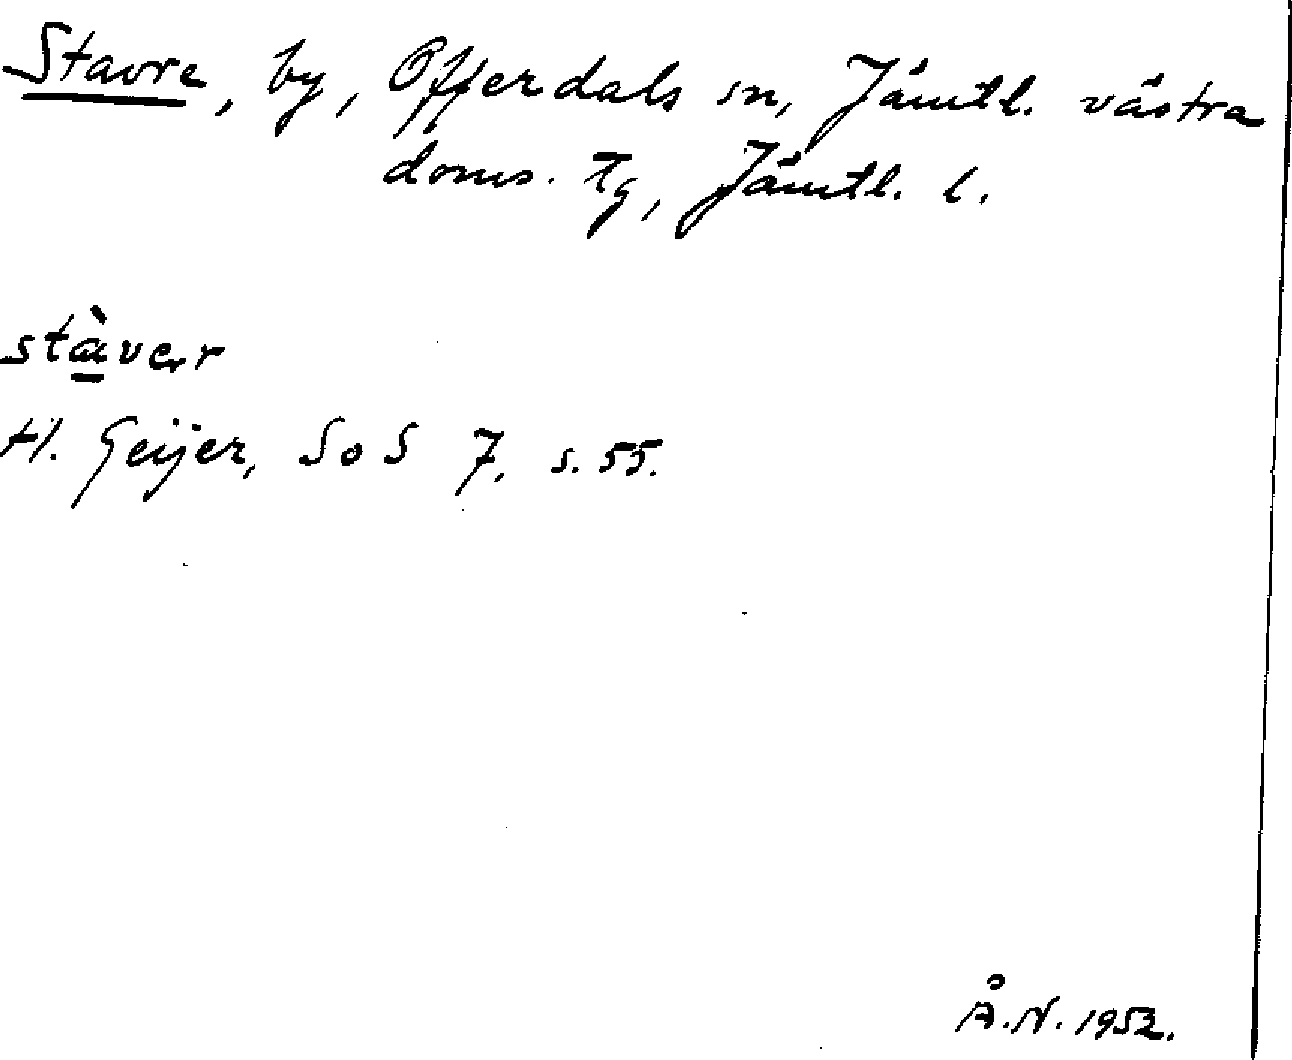 Stavre, by, Offerdals sn, Jämtl. västra
doms. Tg, Jämtl. l.
stàver
H. Geijer, SoS 7, s. 55.
Å.N. 1952.